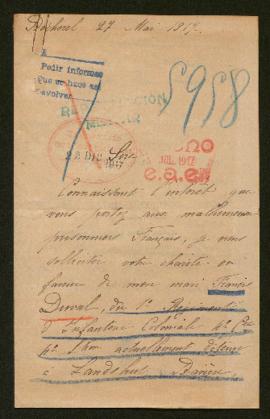 Rochecorl 27 Mai 1917
A
Pedir informes
que se hizo en
devolver
5958
22 DIC 1917
JUL. 1917
Connaissant l'intéret que
vous portez aux malheureux
prisonniers Français, je viens
solliciter votre charité en
faveur de mon mari François
Duval, du 1er Régiment
d'Infanterie Colonial 4e Cie
actuellement détenu
à Landshut Bavière